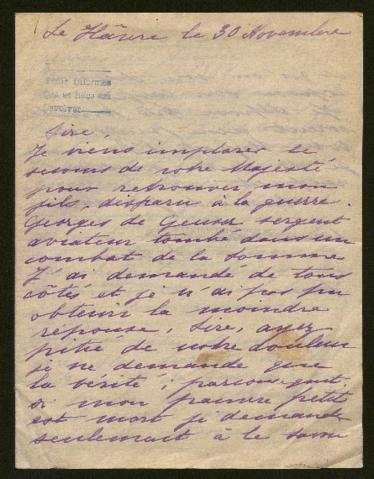 Le Hâvre le 30 Novembre
Sire,
Je viens implorer le
secours de votre Majesté
pour retrouver mon
fils, disparu à la guerre.
Georges de Geuser sergent
aviateur tombé dans un
combat de la Somme
J'ai demandé de tous
côtés et je n'ai pas pu
obtenir la moindre
réponse, Sire, ayez
pitié de notre douleur
je ne demande que
la vérité ;
si mon pauvre petit
est mort je demande
seulement à le savoir